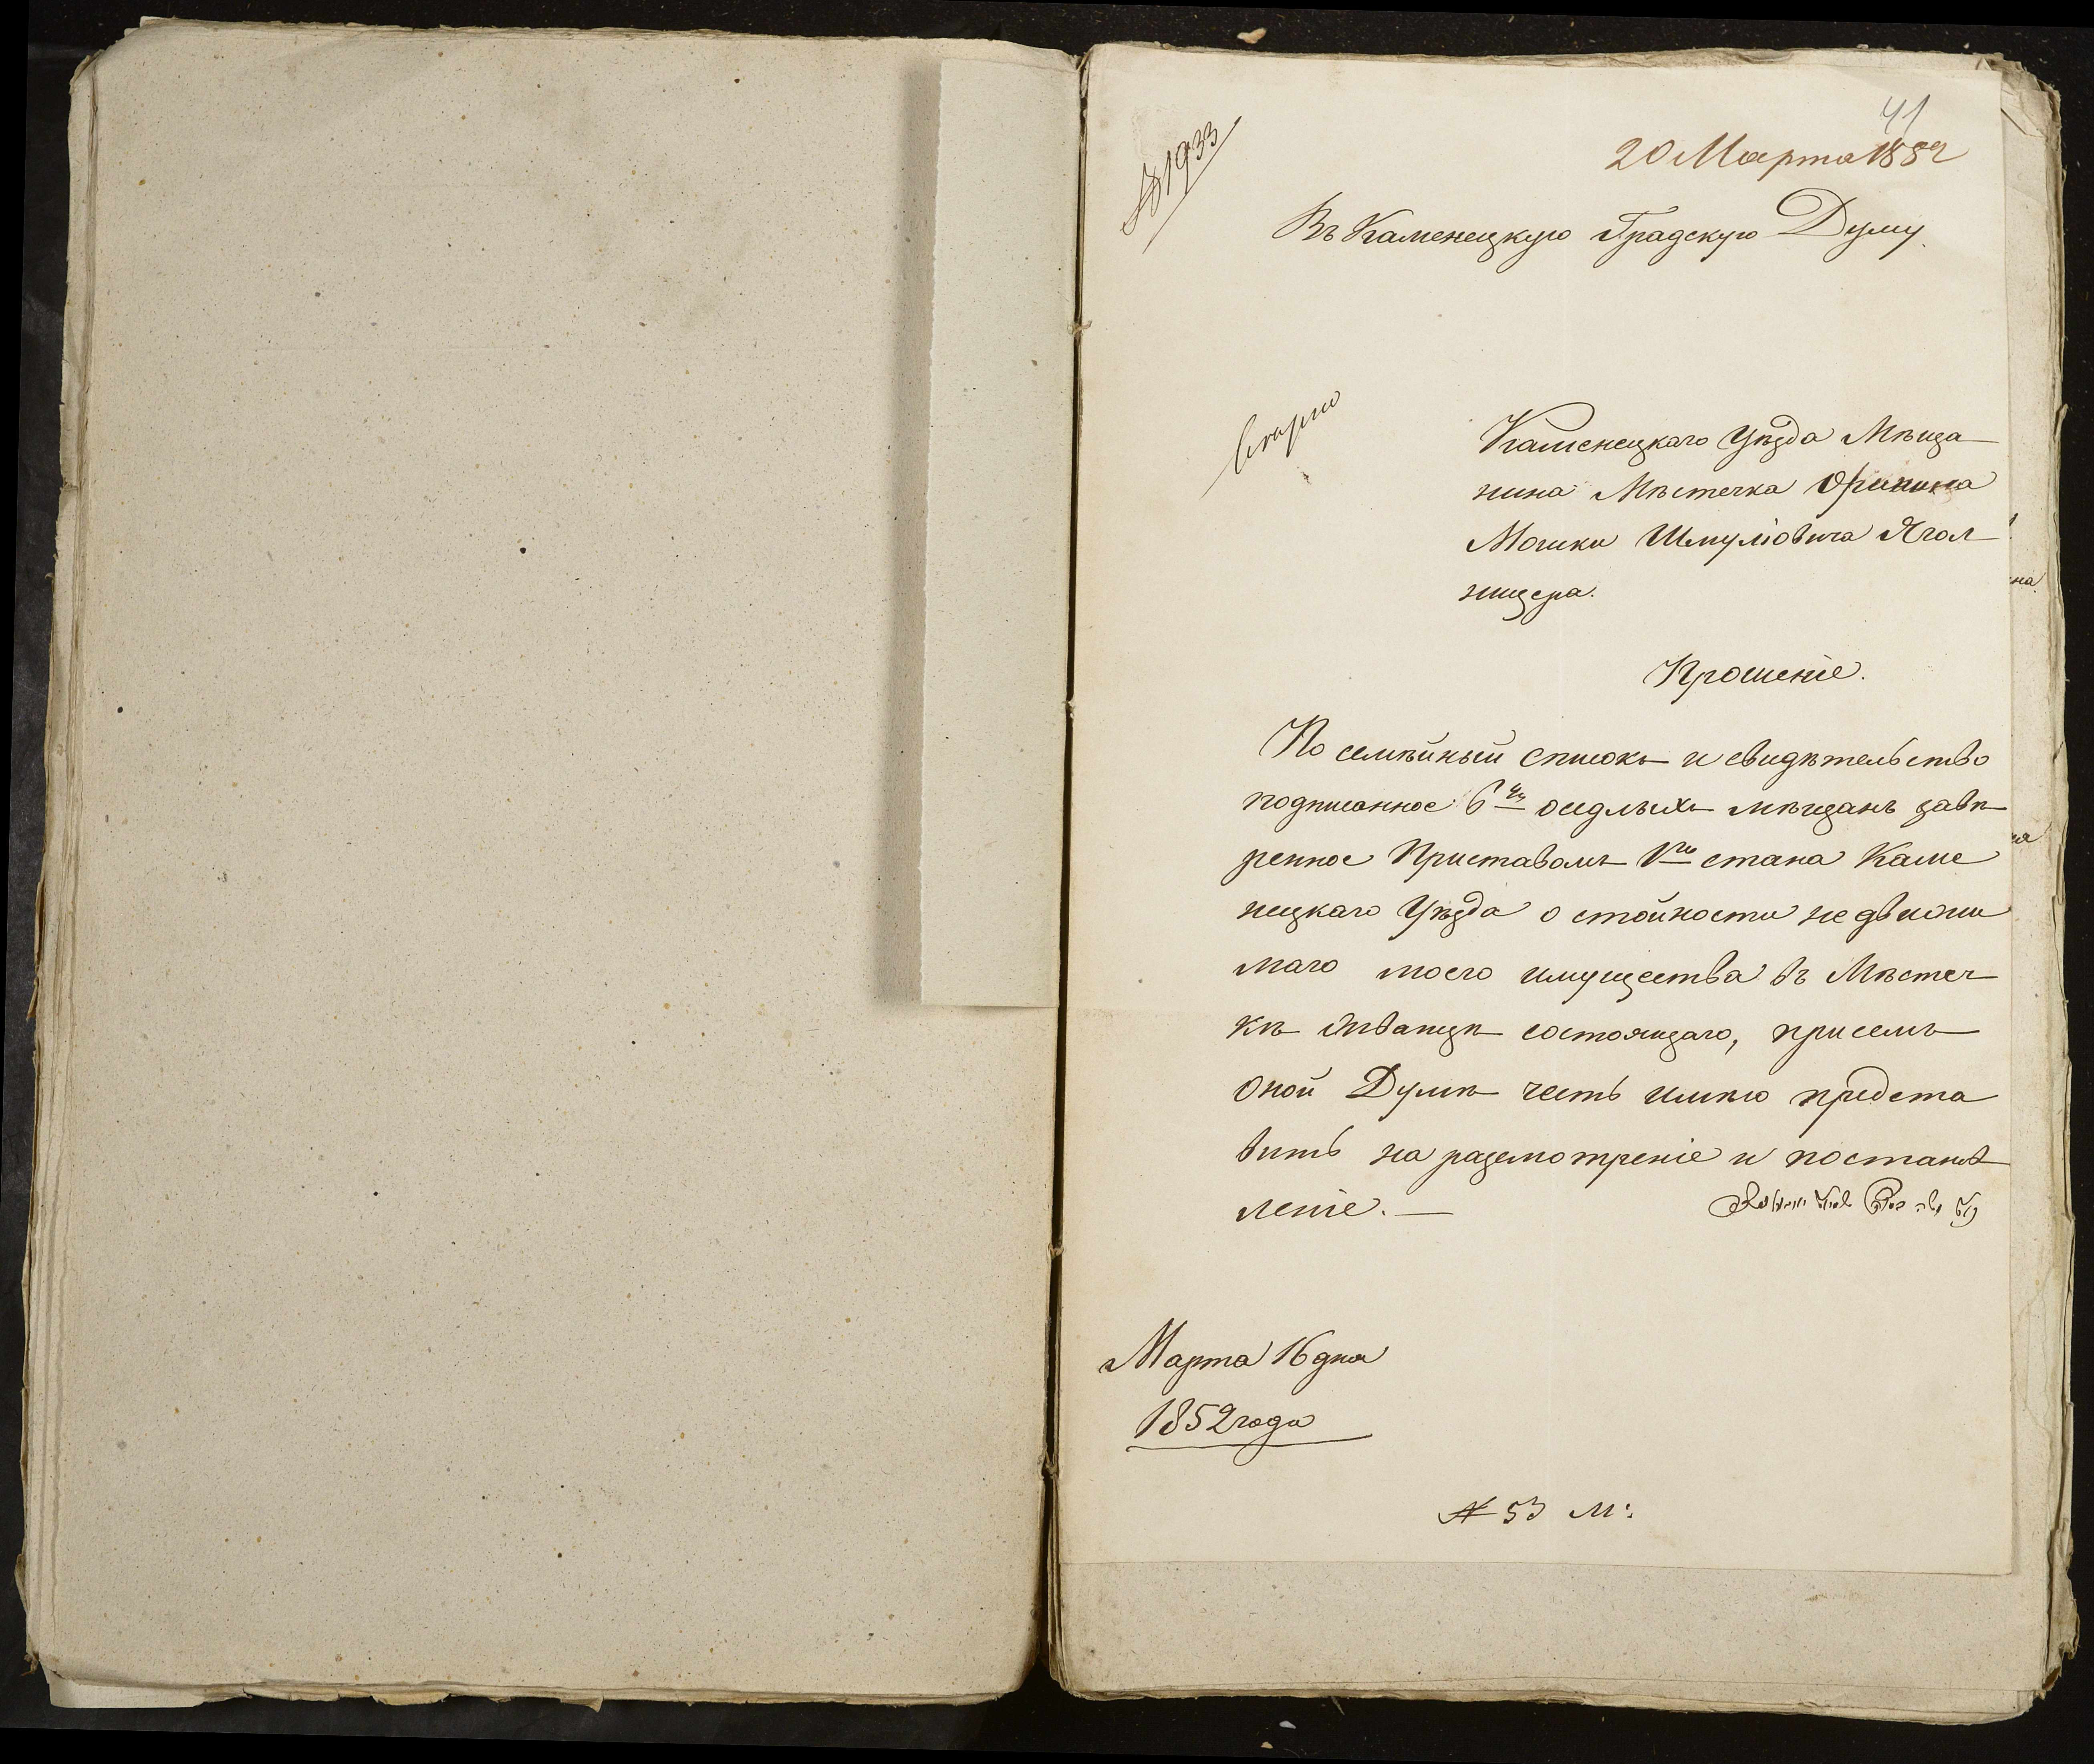 41
№ 1933
20 Марта 1852
Въ Каменецкую Градскую Думу.
Каменецкаго Уѣзда Мѣща
нина Мѣстечка Оринина
Мошки Шмуліовича Ягол
ницера.
Прошеніе.
По семѣйный списокъ и свидѣтельство
подписанное 6ҭи оседлыхъ мѣщанъ завѣ
ренное Приставомъ 1го стана Каме
нецкаго Уѣзда о стойности не движи
маго моего имущества въ Мѣстеч
кѣ Жванцѣ состоящаго, присемъ
оной Думѣ честь имѣю предста
вить на разсмотреніе и постанов
леніе. —
Марта 16 дня
1852 года
№ 53 М: